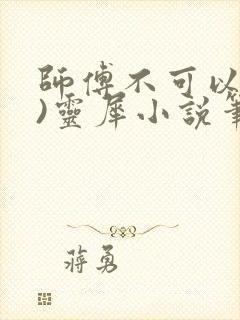 師傅不可以
)靈犀小說筆
蔣勇